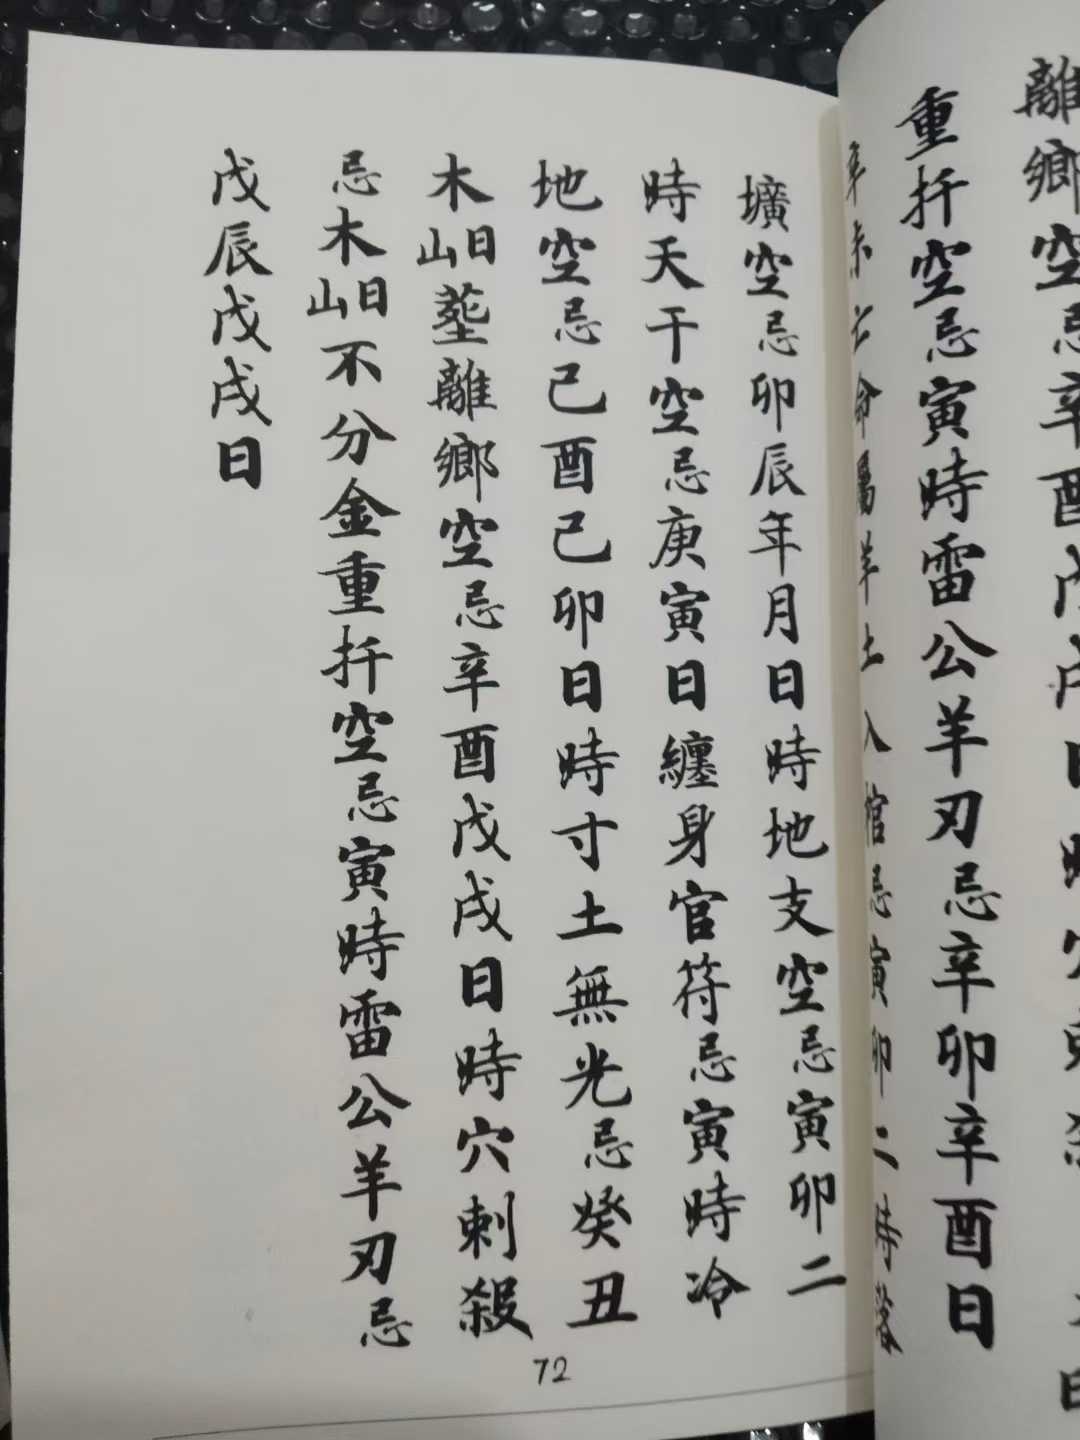 離鄉空忌辛酉戊戌日時穴
重扦空忌寅時雷公羊刃忌辛卯辛酉日
辛未亡命屬羊土入棺忌寅卯二時落
壙空忌卯辰年月日時地支空忌寅卯二
時天干空忌庚寅日纏身官符忌寅時冷
地空忌己酉己卯日時寸土無光忌癸丑
木日山塟離鄉空忌辛酉戊戌日時穴刺殺
忌木日山不分金重扦空忌寅時雷公羊刃忌
戊辰戊戌日
72